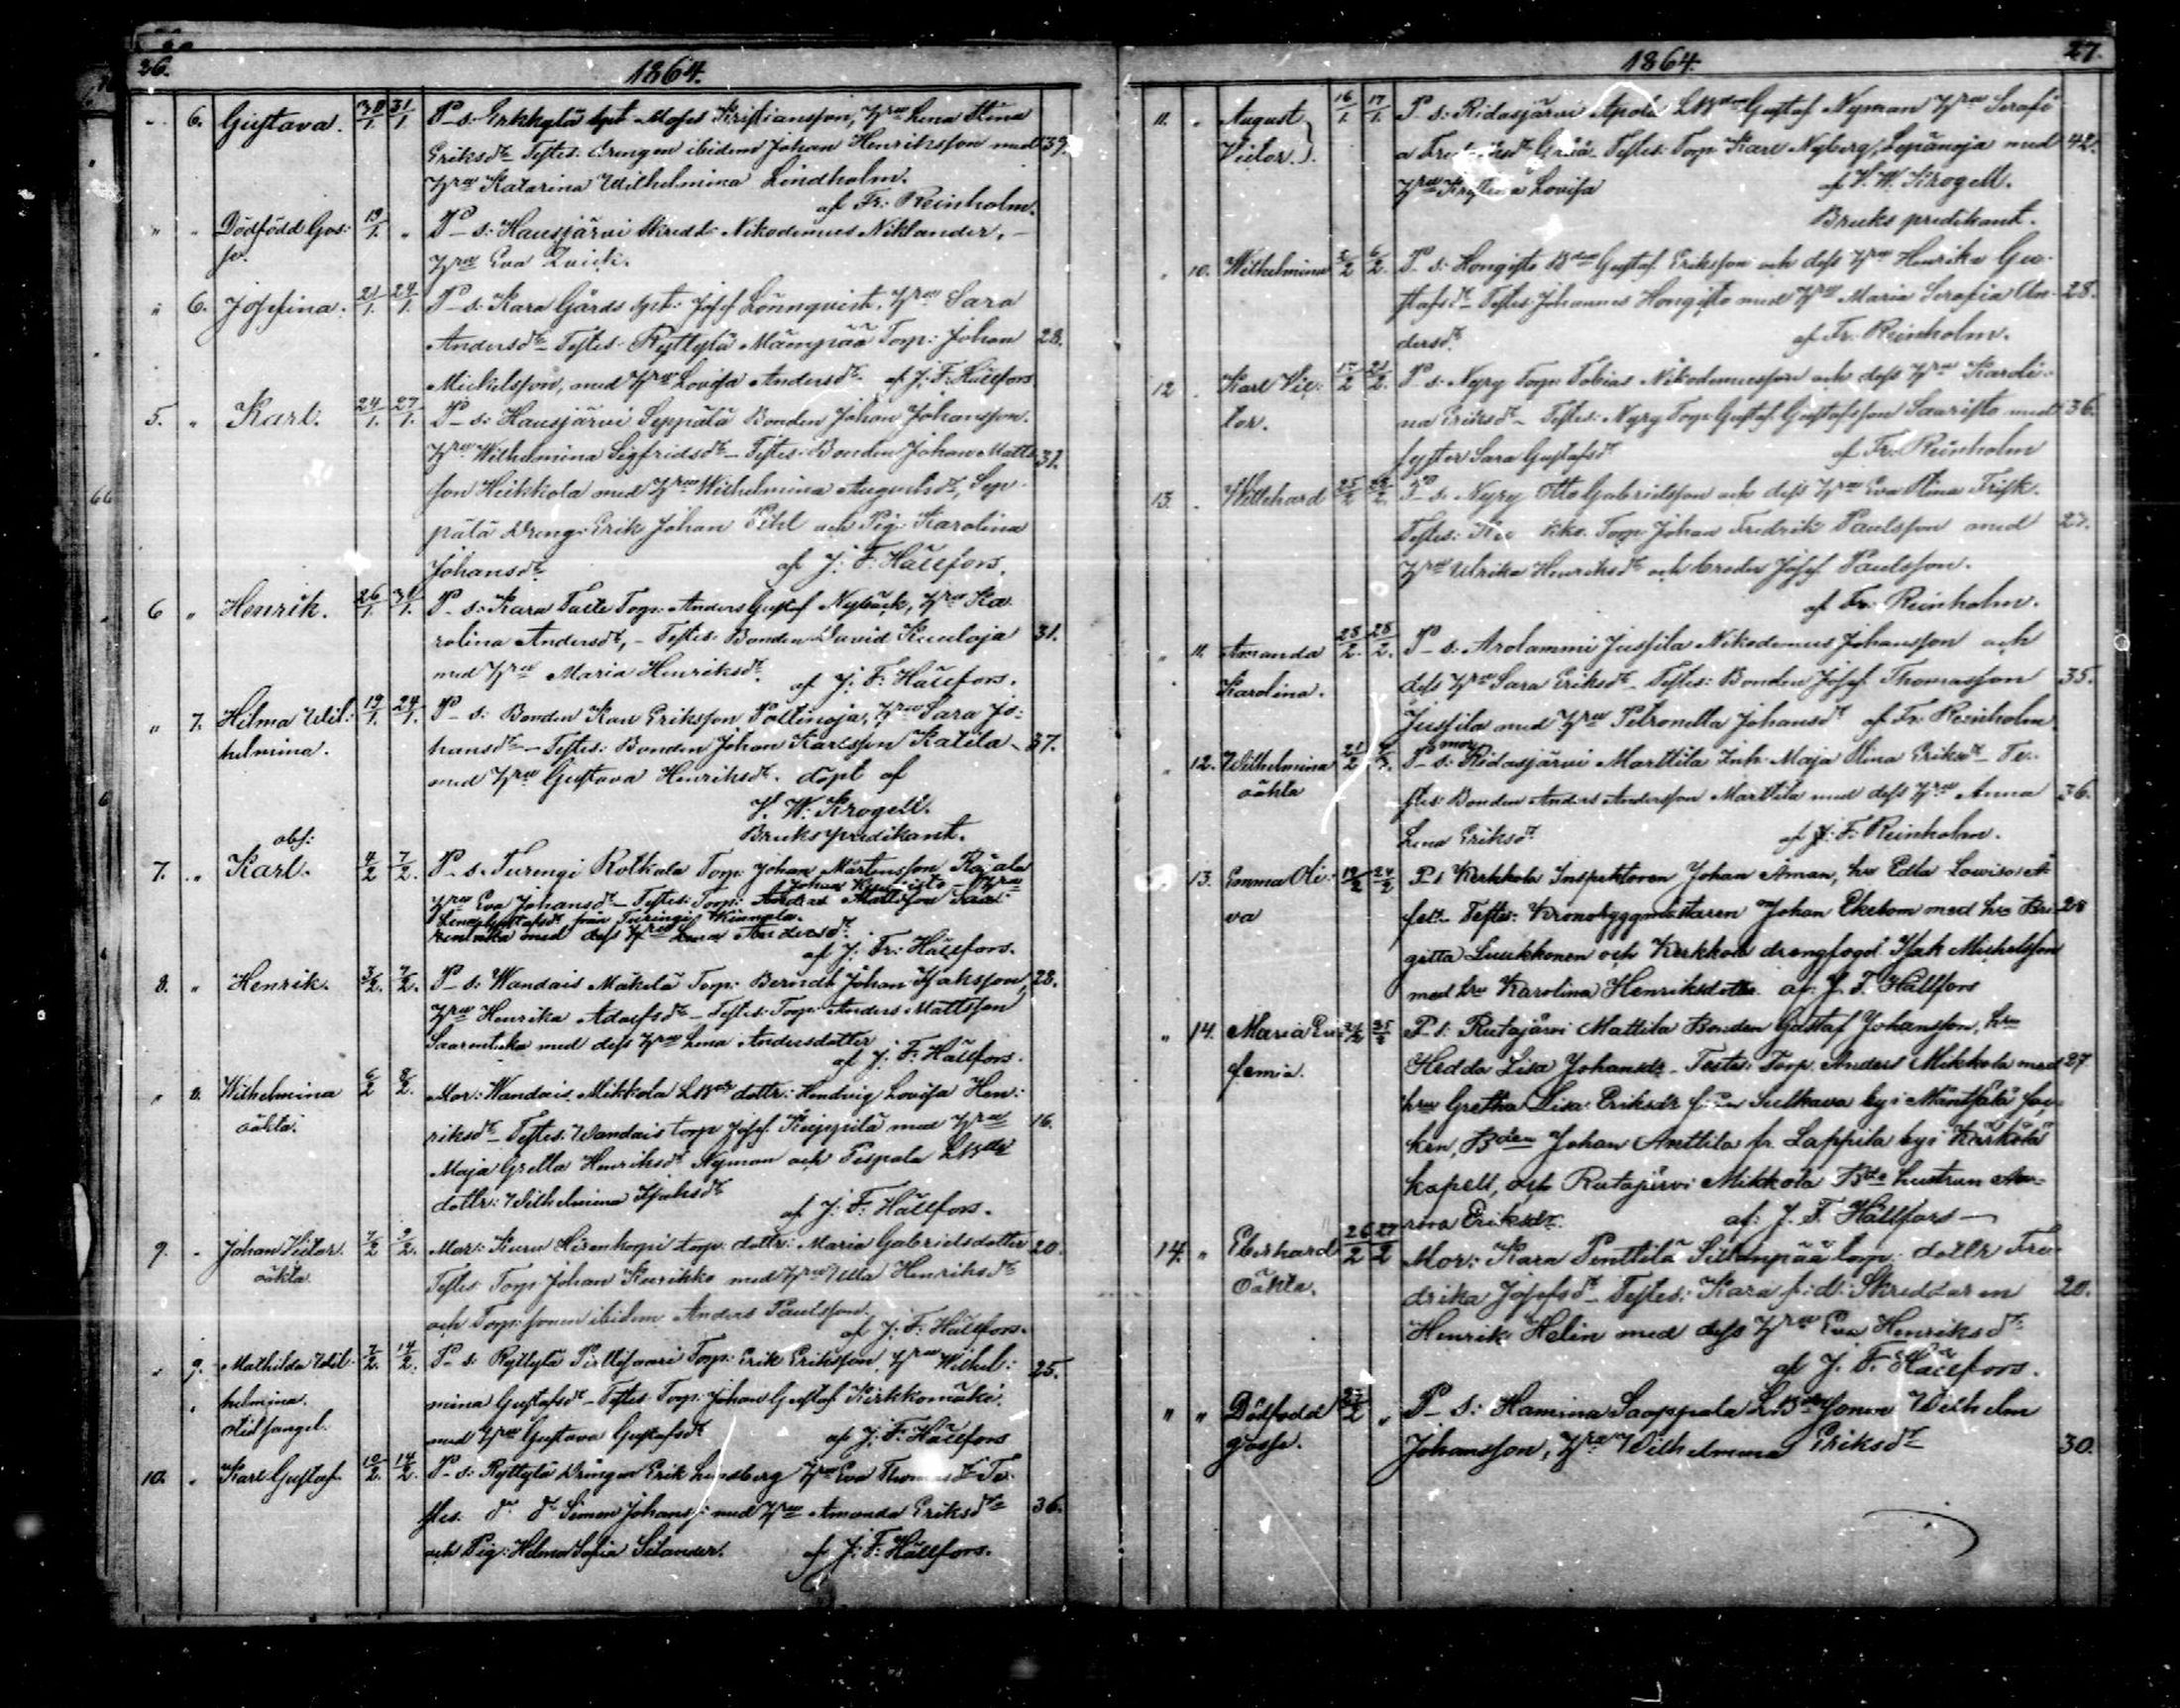 26.
1864.
6. Gustava. 30/1. 31/1. P-s: Erkkylä Spt Moses Kristiansson, Hru Lena Stina
Eriksdr Testes: Drengen ibidem Johan Henriksson med 39.
Hru Katarina Wilhelmina Lindholm.
af Fr: Reinholm.
" " Dödfödd Gos- 19/1. " P-s: Hausjärvi Skredd: Nikodemus Niklander,
se. Hru Eva
" 6. Josefina. 21/1. 24/1. P-s: Kara Gårds Spt: Josef Lönnqvist, Hru Sara
Andersdr Testes: Ryttylä Mäenpää Torp: Johan 28.
Mickelsson, med Hru Lovisa Andersdr. af J: F: Hällfors
5. " Karl. 24/1. 27/1. P-s: Hausjärvi Seppälä Bonden Johan Johansson.
Hru Wilhelmina Sigfridsdr - Testes: Bonden Johan Matts- 31.
son Heikkola med Hru Wilhelmina Augustsdr, Sep-
pälä Dreng: Erik Johan Pihl och Pig: Karolina
Johansdr. af J: F: Hällfors.
6 " Henrik. 26/1. 31/1. P-s: Kara Torp: Anders Gustaf Nybäck, Hru Ka-
rolina Andersdr, - Testes: Bonden David Kuuloja 31.
med Hru Maria Henriksdr. af J: F: Hällfors.
" 7. Helma Wil- 19/1. 24/1. P-s: Bonden Karl Eriksson Poltinoja, Hru Sara Jo-
helmina. hansdr - Testes: Bonden Johan Karlsson Katila - 37.
med Hru Gustava Henriksdr. döpt af
F. W. Krogell.
Brukspredikant.
obs:
7. " Karl. 4/2 7/2. P-s. Turengi Rotkola Torp: Johan Mårtensson Rajala
Johan Hru
Hru Eva Johansdr - Testes: Torp: Anders Mattsson Saa-
Lena Gustafsdr från Turengi
med dess Hru Lena Andersdr.
af J: Fr: Hällfors.
8. " Henrik. 3/2. 7/2. P-s: Wandais Mäkelä Torp: Berndt Johan Isaksson, 28.
Hru Henrika Adolfsdr - Testes: Torp: Anders Mattsson
Saarentaka med dess Hru Lena Andersdotter
af J: F: Hällfors.
" 8. Wilhelmina 6/2 8/2. Mor: Wandais Mikkola LBds dottr: Hedvig Lovisa Hen-
oäkta. riksdr - Testes: Wandais torp Josef Keppilä med Hru 16.
Maja Gretta Henriksdr Nyman och Tespala LBds
dottr: Wilhelmina Isaksdr af J: F: Hällfors.
9. - Johan Victor. 7/2 9/2. Mor: Kuru Hirenkorpi torp: dottr: Maria Gabrielsdotter 20.
oäkta. Testes Torp: Johan Kurikko med Hru Ulla Henriksdr
och Torp: sonen ibidem Anders Paulsson.
af J: F: Hällfors.
" 9. Mathilda Wil- 7/2. 14/2. P-s: Ryttylä Pirttisaari Torp: Erik Eriksson, Hru Wilhel- 25.
helmina. mina Gustafsdr - Testes Torp: Johan Gustaf Kirkkomäki
med Hru Gustava Gustafsdr af J: F: Hällfors
10. " Karl Gustaf. 10/2. 14/2. P-s: Ryttylä Drängen Erik Lindberg Hru Eva Thomasdr Te-
stes: do do Simon Johanss: med Hru Amanda Eriksdr 36.
och Pig: Helena Sofia Silander. af J: F: Hällfors.
27.
1864.
11. " August 16/1. 17/1. P-s: Ridasjärvi Apola LBden Gustaf Nyman Hru Serafi-
Victor. a Fredriksdr Testes: Torp: Karl Nyberg, Lepänoja med 42.
Hru Kristina Lovisa af F. W. Krogell.
Bruks predikant.
" 10. Wilhelmina 5/2 6/2. P-s: Hongisto Bden Gustaf Eriksson och dess Hru Henrika Gu-
stafsdr Testes Johannes Hongisto med Hru Maria Serafia An- 28.
dersdr. af Fr: Reinholm.
12 . Karl Vic- 17/2 21/2. P-s: Nyry Torp: Tobias Nikodemusson och dess Hru Karoli-
tor. na Eriksdr - Testes: Nyry Torp: Gustaf Gustafsson Saaristo med 36.
syster Sara Gustafsdr af Fr: Reinholm
13. . Willehard 25/2 28/2. P-s. Nyry Otto Gabrielsson och dess Hru Eva Stina Frisk.
Testes: Torp: Johan Fredrik Paulsson med 27.
Hru Ulrika Henriksdr och broder Josef Paulsson.
af Fr: Reinholm.
" 11. Amanda 28/2. 28/2. P-s: Arolammi Jussila Nikodemus Johansson och
Karolina. dess Hru Sara Eriksdr - Testes: Bonden Josef Thomasson 35.
Jussila med Hru Petronella Johansdr af Fr: Reinholm
" 12. Wilhelmina P mor s: Ridasjärvi Marttila Inh: Maja Stina Eriksdr - Te-
oäkta stes: Bonden Anders Andersson Marttila med dess Hru Anna 36.
Lena Eriksdr af J: F: Reinholm.
" 13. Emma Oli- 19/2 24/2 P. s Kerkkola Inspektoren Johan Åman, hru Edla Lowisa
va Testes: Kronobyggmästaren Johan Ekebom med hru Bri- 28
gitta Luukkonen och Kerkkola drengfogd Isak Michelsson
med hru Karolina Henriksdotter. af J. F. Hällfors
" 14. Maria Eu- 25/2 P. s: Rutajärvi Mattila Bonden Gustaf Johansson, hru
femia. Hedda Lisa Johansdr - Testes: Torp. Anders Mikkola med 27
hru Gretha Lisa Eriksdr från Sulkava by i Mäntsälä soc-
ken, Bden Johan Anttila fr. Lappila by i Kärkölä
kapell, och Rutajärvi Mikkola Bde hustrun
Eriksdr. af: J. F. Hällfors
14. " Eberhard 26/2 27/2 Mor: Kara Penttilä Sillanpää torp: dottr Fre-
Oäkta. drika Josefsdr - Testes: Kara s: d: Skreddaren 20.
Henrik Helin med dess Hru Eva Henriksdr
af J. F. Hällfors.
" " Dödfödd 27/2 " P-s: Hamina Saappala LBds sonen Wilhelm
gosse. Johansson, Hru Wilhelmina Eriksdr 30.